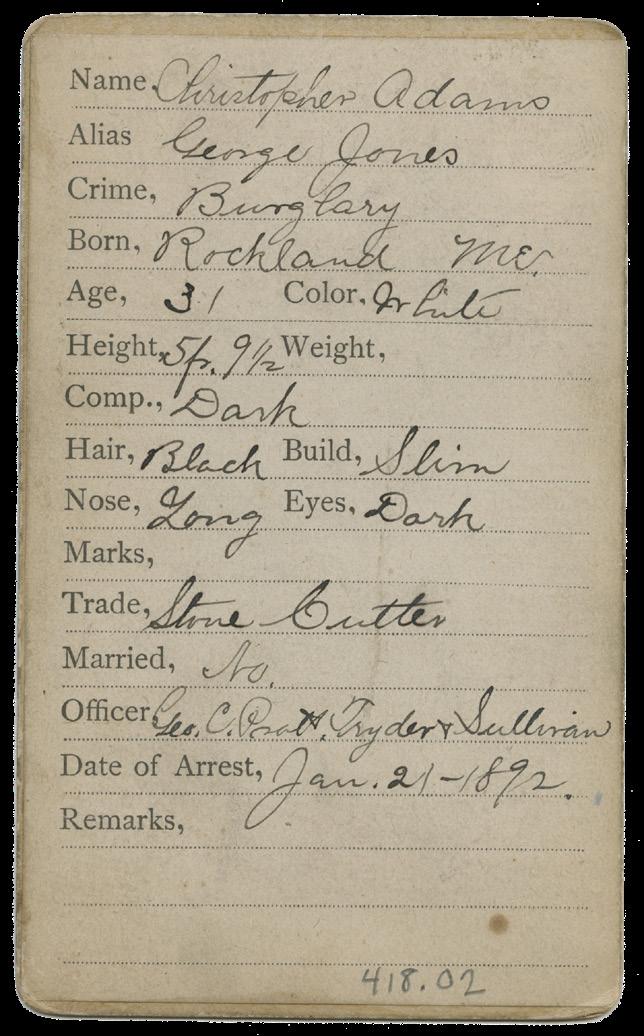 Name, Christopher Adams
Alias George Jones
Crime, Burglary
Born, Rockland Me.
Age, 31 Color, White
Height, 5f. 9 1/2 Weight,
Comp., Dark
Hair, Black Build, Slim
Nose, Long Eyes, Dark
Marks,
Trade, Stone Cutter
Married, No.
Officer, Geo. C. Pratt, Tryder & Sullivan
Date of Arrest, Jan. 21-1892.
Remarks,
418.02